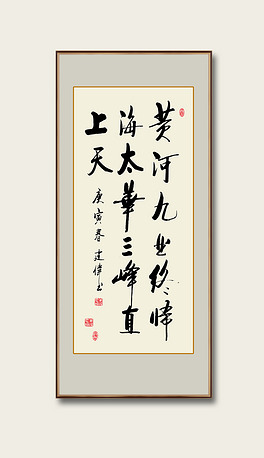 黄河九曲終歸
海太華三峰直
上天
庚寅春建偉书